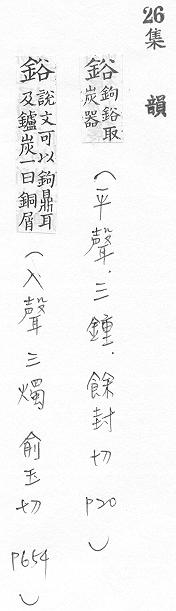 26集 韻
鋊鉤鋊取炭器(平聲.三鍾.餘封切 P20)
鋊說文可以鉤鼎耳及鑪炭一曰銅屑(入聲 三燭 俞玉切 P654)